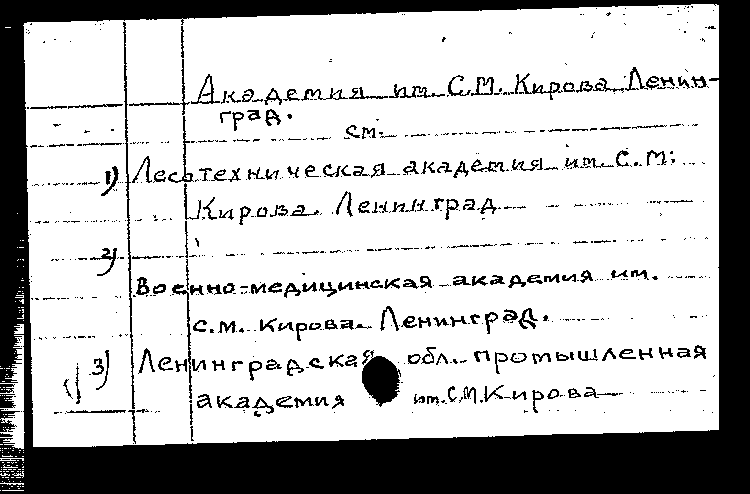 Академия им. С.М. Кирова Ленин-
град.
см.
1) Лесотехническая академия им. С.М.
Кирова. Ленинград
2)
Военно-медицинская академия им.
с.м. Кирова. Ленинград.
3) Ленинградская обл. промышленная
академия им. С.М. Кирова